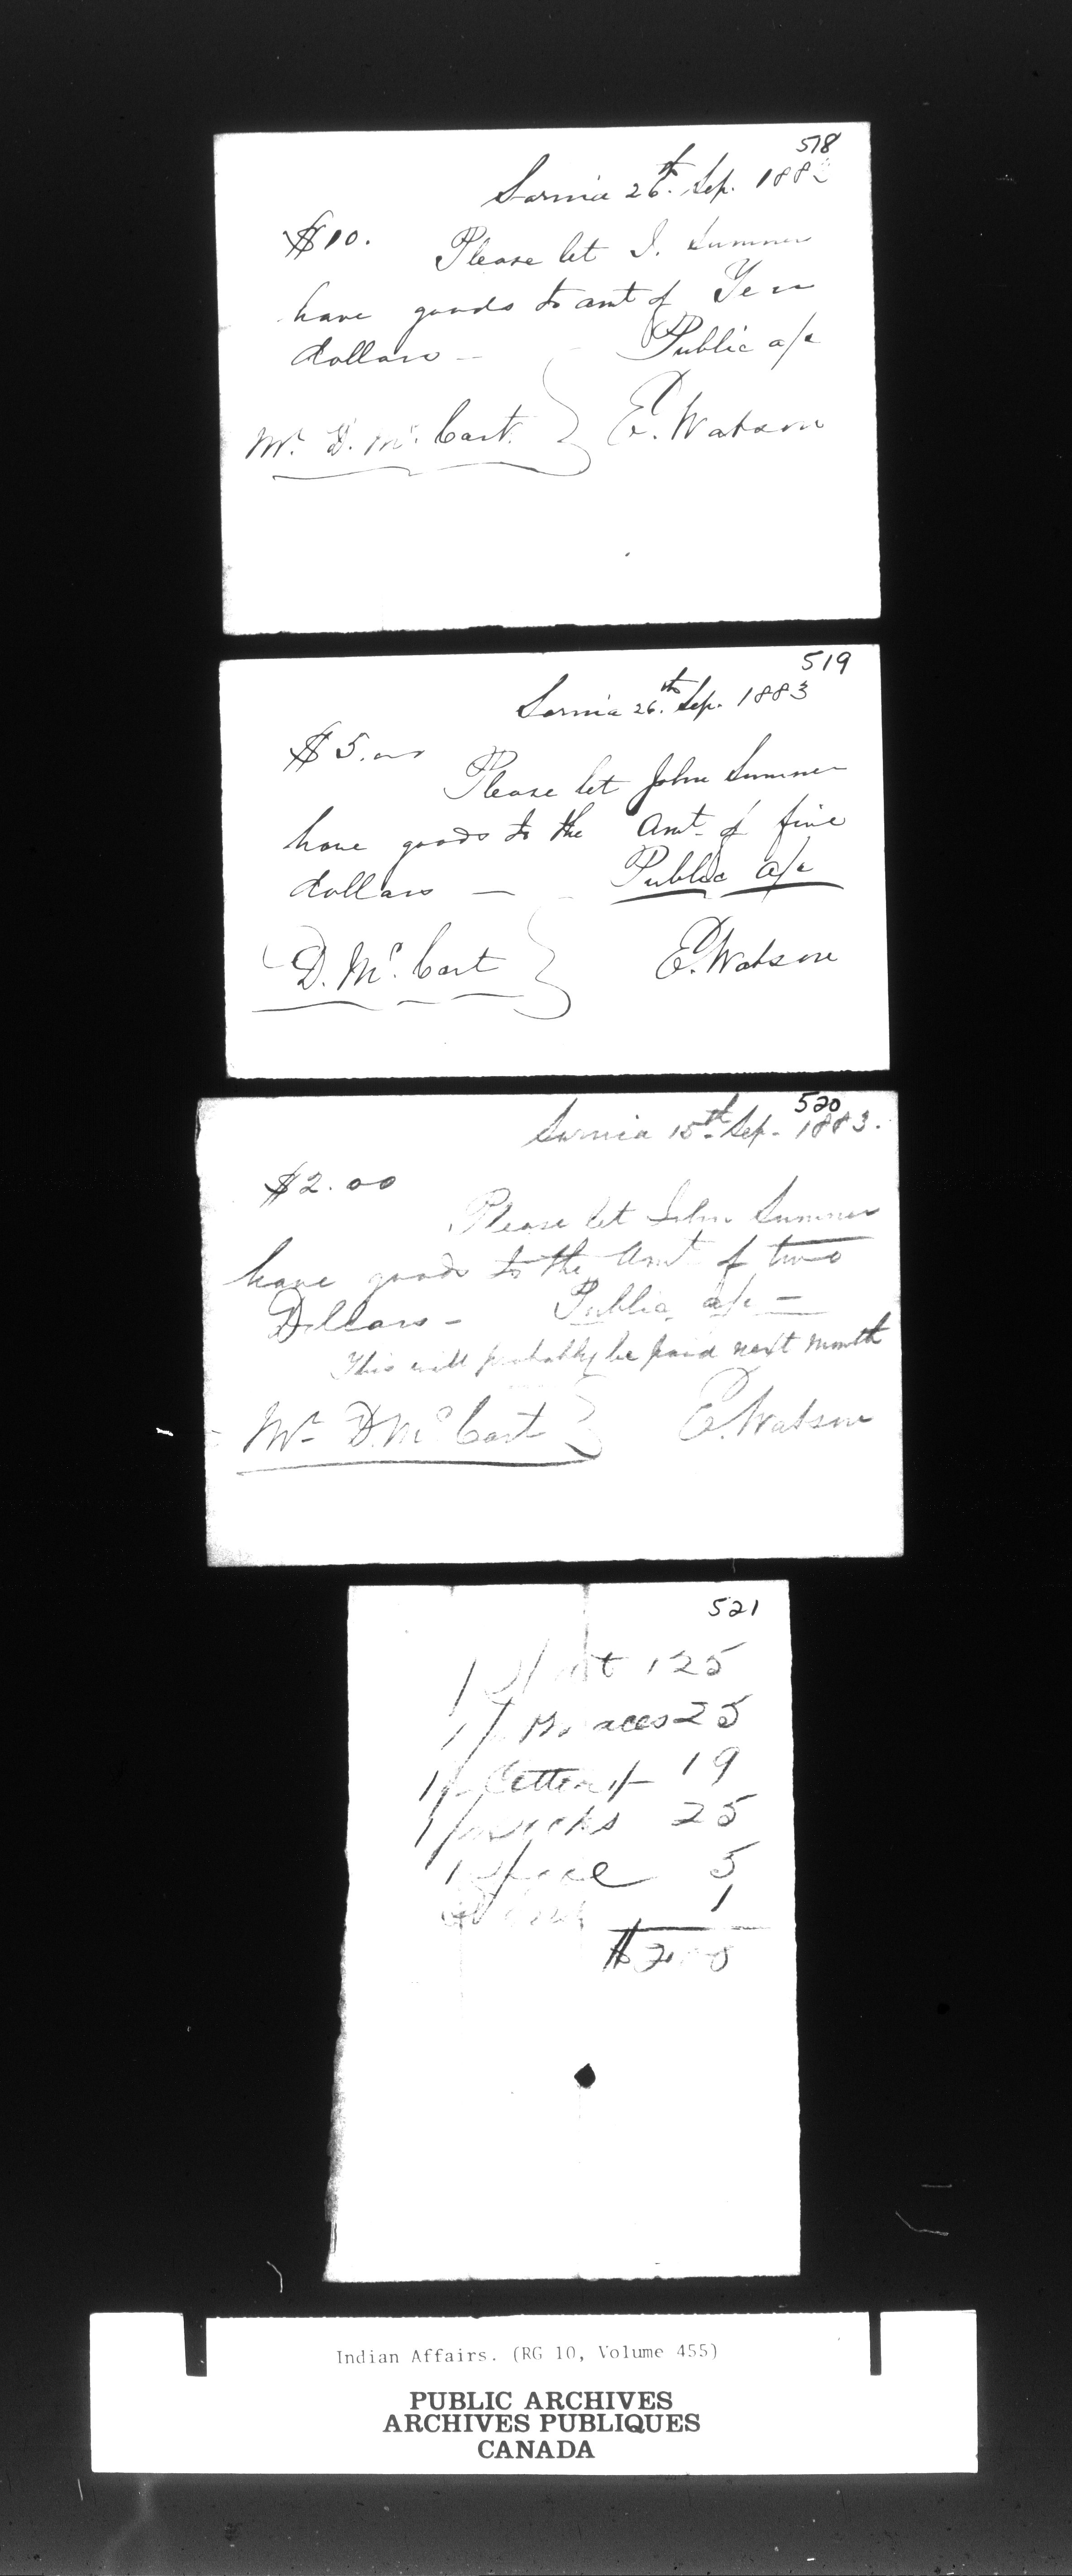 518
Sarnia 26th. Sep. 188
$10.
Please let J. Sumner
have goods to amt of Ten
dollars —
Public a/c
Mr. D. Mc. Cart.
E. Watson
519
Sarnia 26th. Sep. 1883
$5.00
Please let John Sumner
have goods to the Amt. of five
dollars —
Public a/c
D. Mc. Cart
E. Watson
520
Sarnia 15th. Sep. 1883.
$2.00
Please let John Sumner
have goods to the Amt of two
Dollars —
Public a/c —
This will probably be paid next month
Mr D. Mc Cart
E. Watson
521
1 125
1 25
1 19
1 25
1 5
1
$2
Indian Affairs. (RG 10, Volume 455)
PUBLIC ARCHIVES
ARCHIVES PUBLIQUES
CANADA